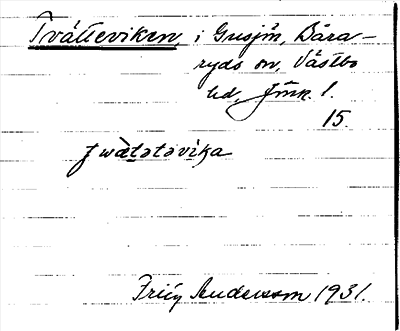 Tvätteviken, i Gussjön, Båra-
ryds sn, Västbo
hd, Jönk. l.
15.
twätətəvika
Friey Andersson 1931.